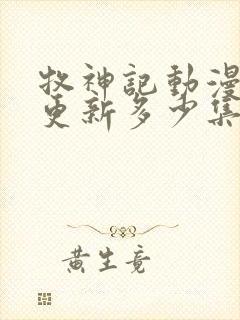 牧神記動漫
更新多少集
黄生竟